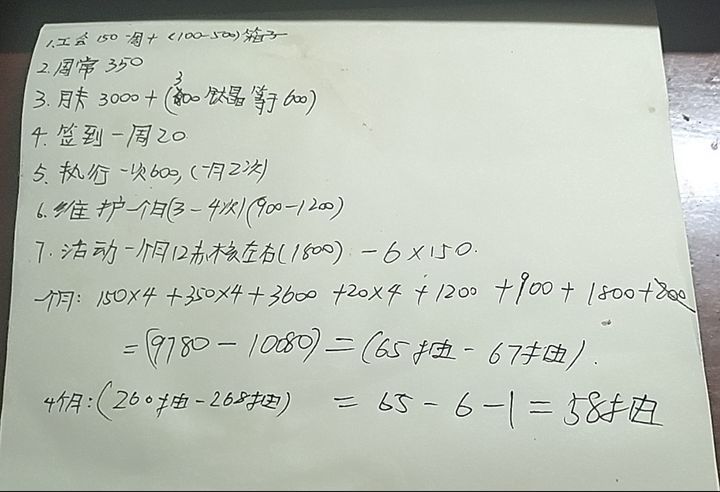 1.工会 150一周+(100-500)箱子
2.周常 350
3.月卡 3000+(300钛晶等于600)
4.签到一周20
5.执行一次600,(一月2次)
6.维护一个月(3-4次)(900-1200)
7.活动一个月12赤核左右(1800) -6×150.
一个月: 150×4+350×4+3600+20×4+1200+900+1800+800
=(9780-10080)=(65抽-67抽).
4个月:(260抽-268抽) = 65-6-1=58抽